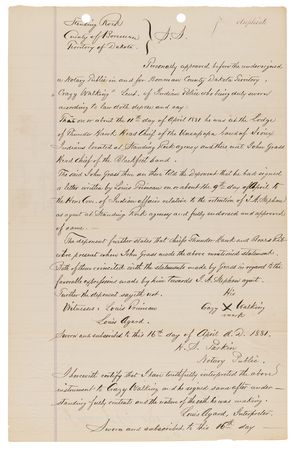 Standing Rock
County of Boreman
Territory of Dakota } S.S.
Personally appeared before the undersigned
a Notary Public in and for Boreman County Dakota Territory,
"Crazy Walking" Lieut. of Indian Police who being duly sworn
according to law doth depose and say:
That on or about the 10th day of April 1881 he was at the Lodge
of Thunder Hawk Head Chief of the Uncapapa band of Sioux
Indians located at Standing Rock Agency and there met John Grass
Head Chief of the Blackfeet band.
The said John Grass then and there told the deponent that he had signed
a letter written by Louis Primeau on or about the 9th day of April to
the Hon. Com. of Indian Affairs relative to the retention of J.A. Stephan
as agent at Standing Rock agency and fully endorsed and approved
of same —
The deponent further states that Chiefs Thunder Hawk and
were present when John Grass made the above mentioned statement.
Both of them coincided with the statements made by Grass in regard to the
favorable expressions made by him towards J.A. Stephan agent.
Further the deponent sayeth not. His
Witnesses: Louis Primeau Crazy X Walking
Louis Agard. mark
Sworn and subscribed to this 16th day of April A.D. 1881.
H. S. Parkin
Notary Public.
I herewith certify that I have faithfully interpreted the above
instrument to Crazy Walking and he signed same after under-
standing fully contents and the nature of the oath he was making.
Louis Agard, Interpreter.
Sworn and subscribed to this 16th day —